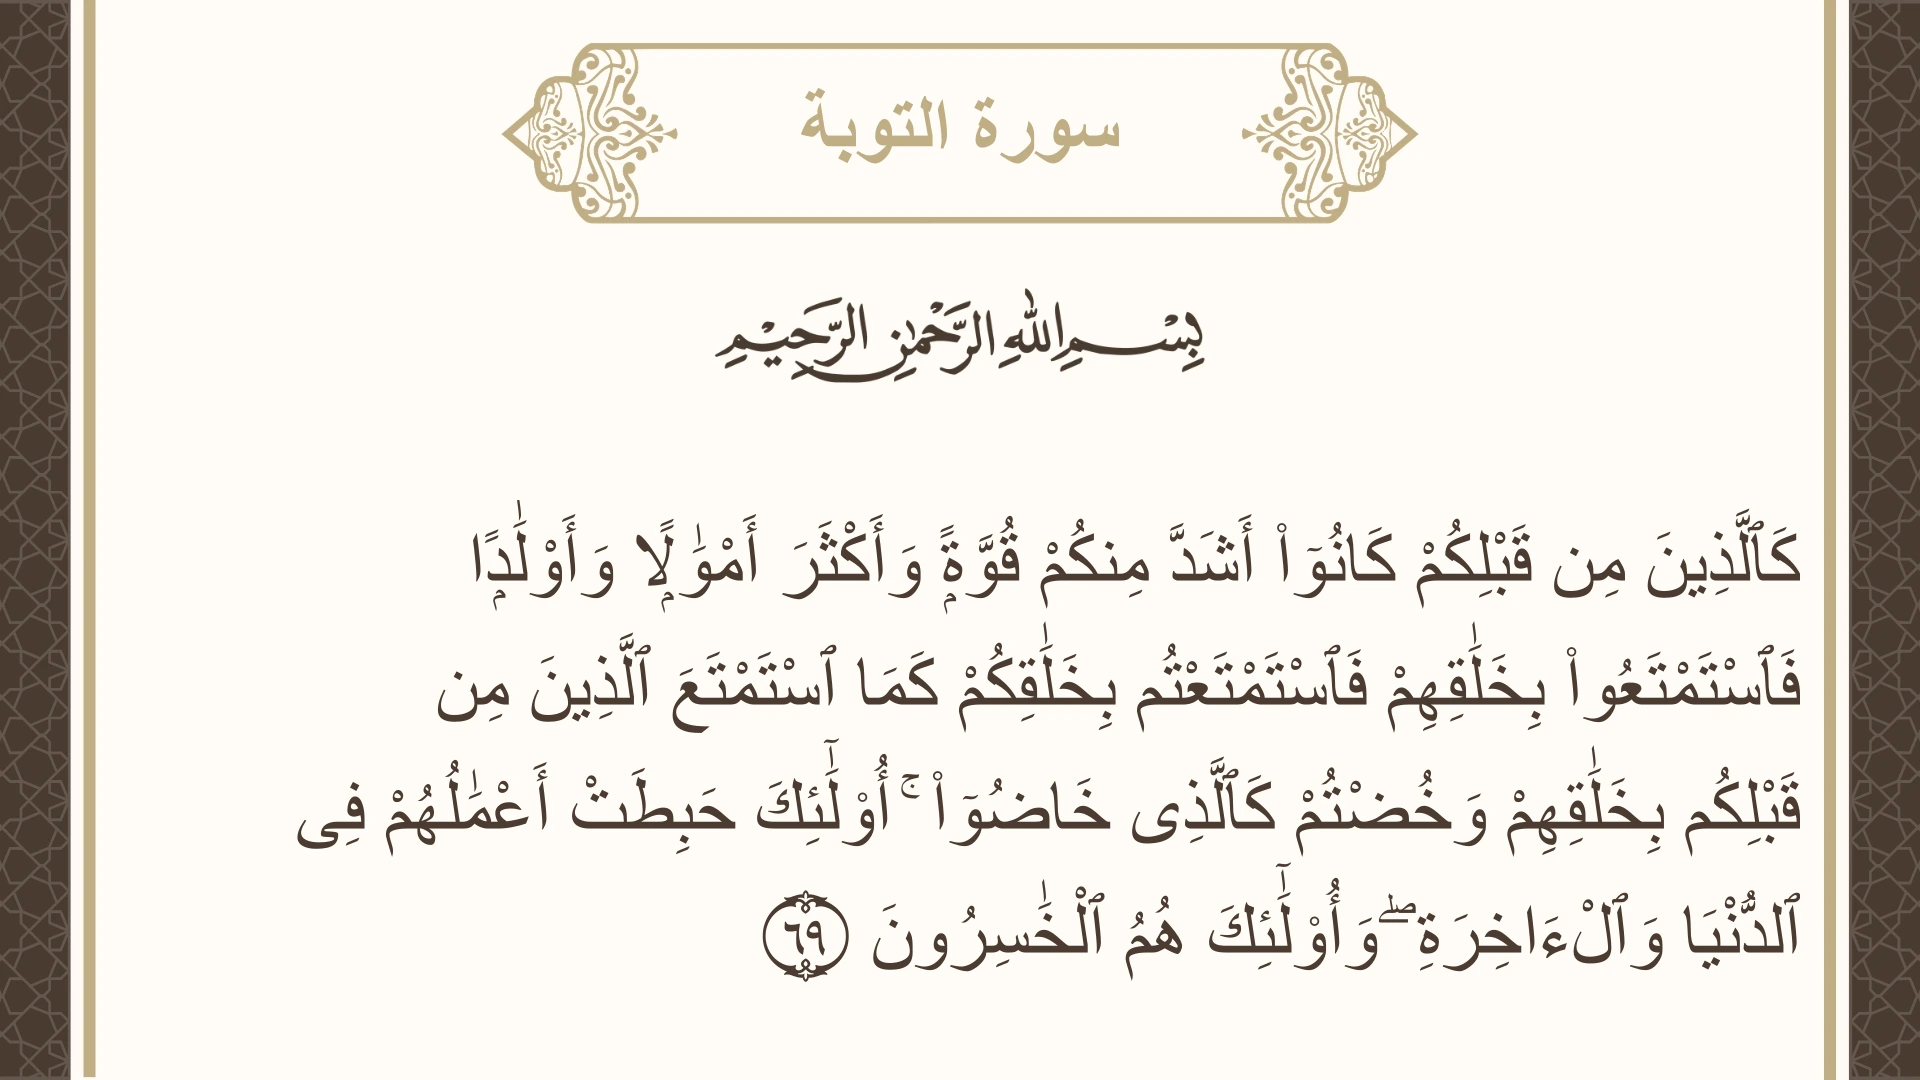 سورة التوبة
بِسْمِ اللهِ الرَّحْمٰنِ الرَّحِيْمِ
كَٱلَّذِينَ مِن قَبْلِكُمْ كَانُوٓا۟ أَشَدَّ مِنكُمْ قُوَّةًۭ وَأَكْثَرَ أَمْوَٰلًۭا وَأَوْلَٰدًۭا
فَٱسْتَمْتَعُوا۟ بِخَلَٰقِهِمْ فَٱسْتَمْتَعْتُم بِخَلَٰقِكُمْ كَمَا ٱسْتَمْتَعَ ٱلَّذِينَ مِن
قَبْلِكُم بِخَلَٰقِهِمْ وَخُضْتُمْ كَٱلَّذِى خَاضُوٓا۟ ۚ أُو۟لَٰٓئِكَ حَبِطَتْ أَعْمَٰلُهُمْ فِى
ٱلدُّنْيَا وَٱلْءَاخِرَةِ ۖ وَأُو۟لَٰٓئِكَ هُمُ ٱلْخَٰسِرُونَ ٦٩